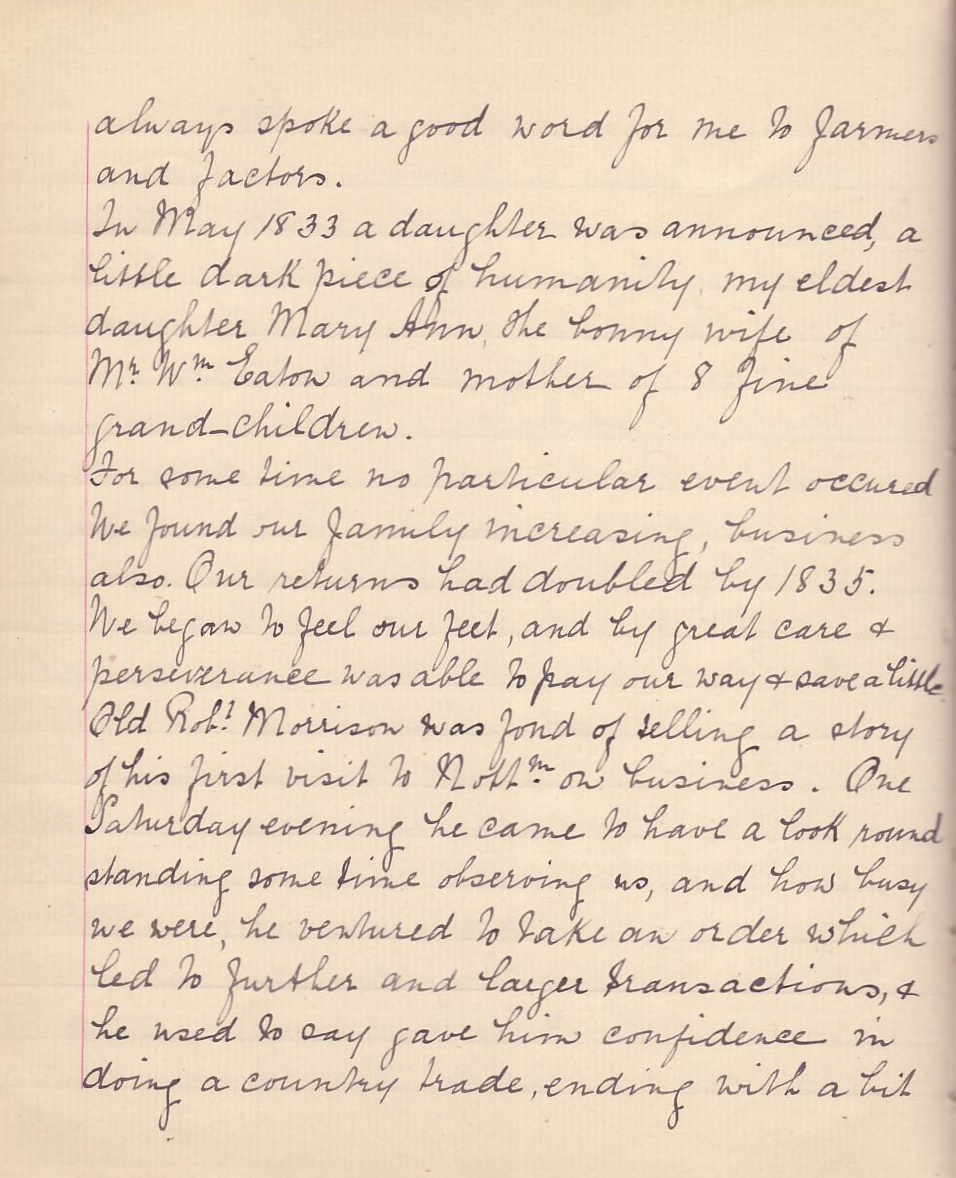 always spoke a good word for me to farmers
and factors.
In May 1833 a daughter was announced, a
little dark piece of humanity, my eldest
daughter Mary Ann, the bonny wife of
Mr. Wm. Eaton and mother of 8 fine
grand-children.
For some time no particular event occured
We found our family increasing, business
also. Our returns had doubled by 1835.
We began to feel our feet, and by great care &
perseverance was able to pay our way & save a little
Old Robt. Morrison was fond of telling a story
of his first visit to Nottm. on business. One
Saturday evening he came to have a look round
standing some time observing us, and how busy
we were, he ventured to take an order which
led to further and larger transactions, &
he used to say gave him confidence in
doing a country trade, ending with a bit